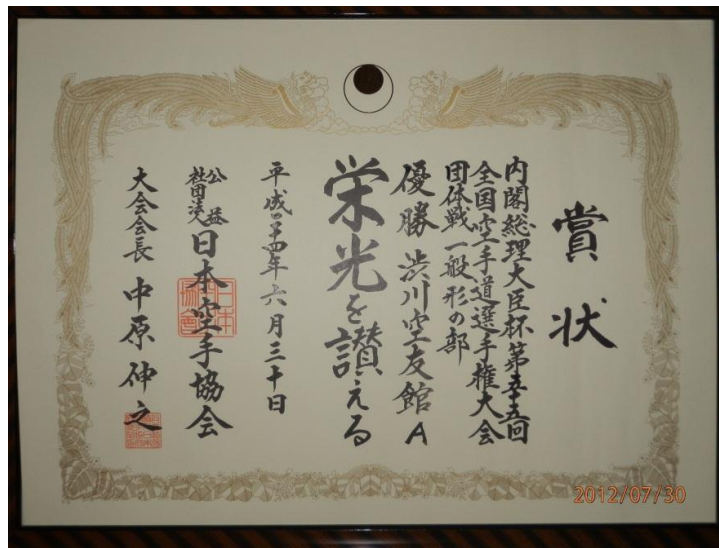 賞状
内閣総理大臣杯第五十五回
全国空手道選手権大会
団体戦一般形の部
優勝 渋川空友館A
栄光を讃える
平成二十四年六月三十日
公益社団法人日本空手協会
大会会長 中原伸之
2012/07/30